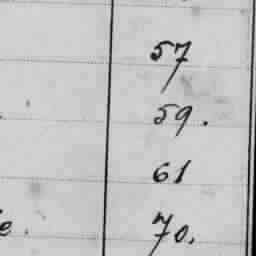 57
59.
61
e. 70.